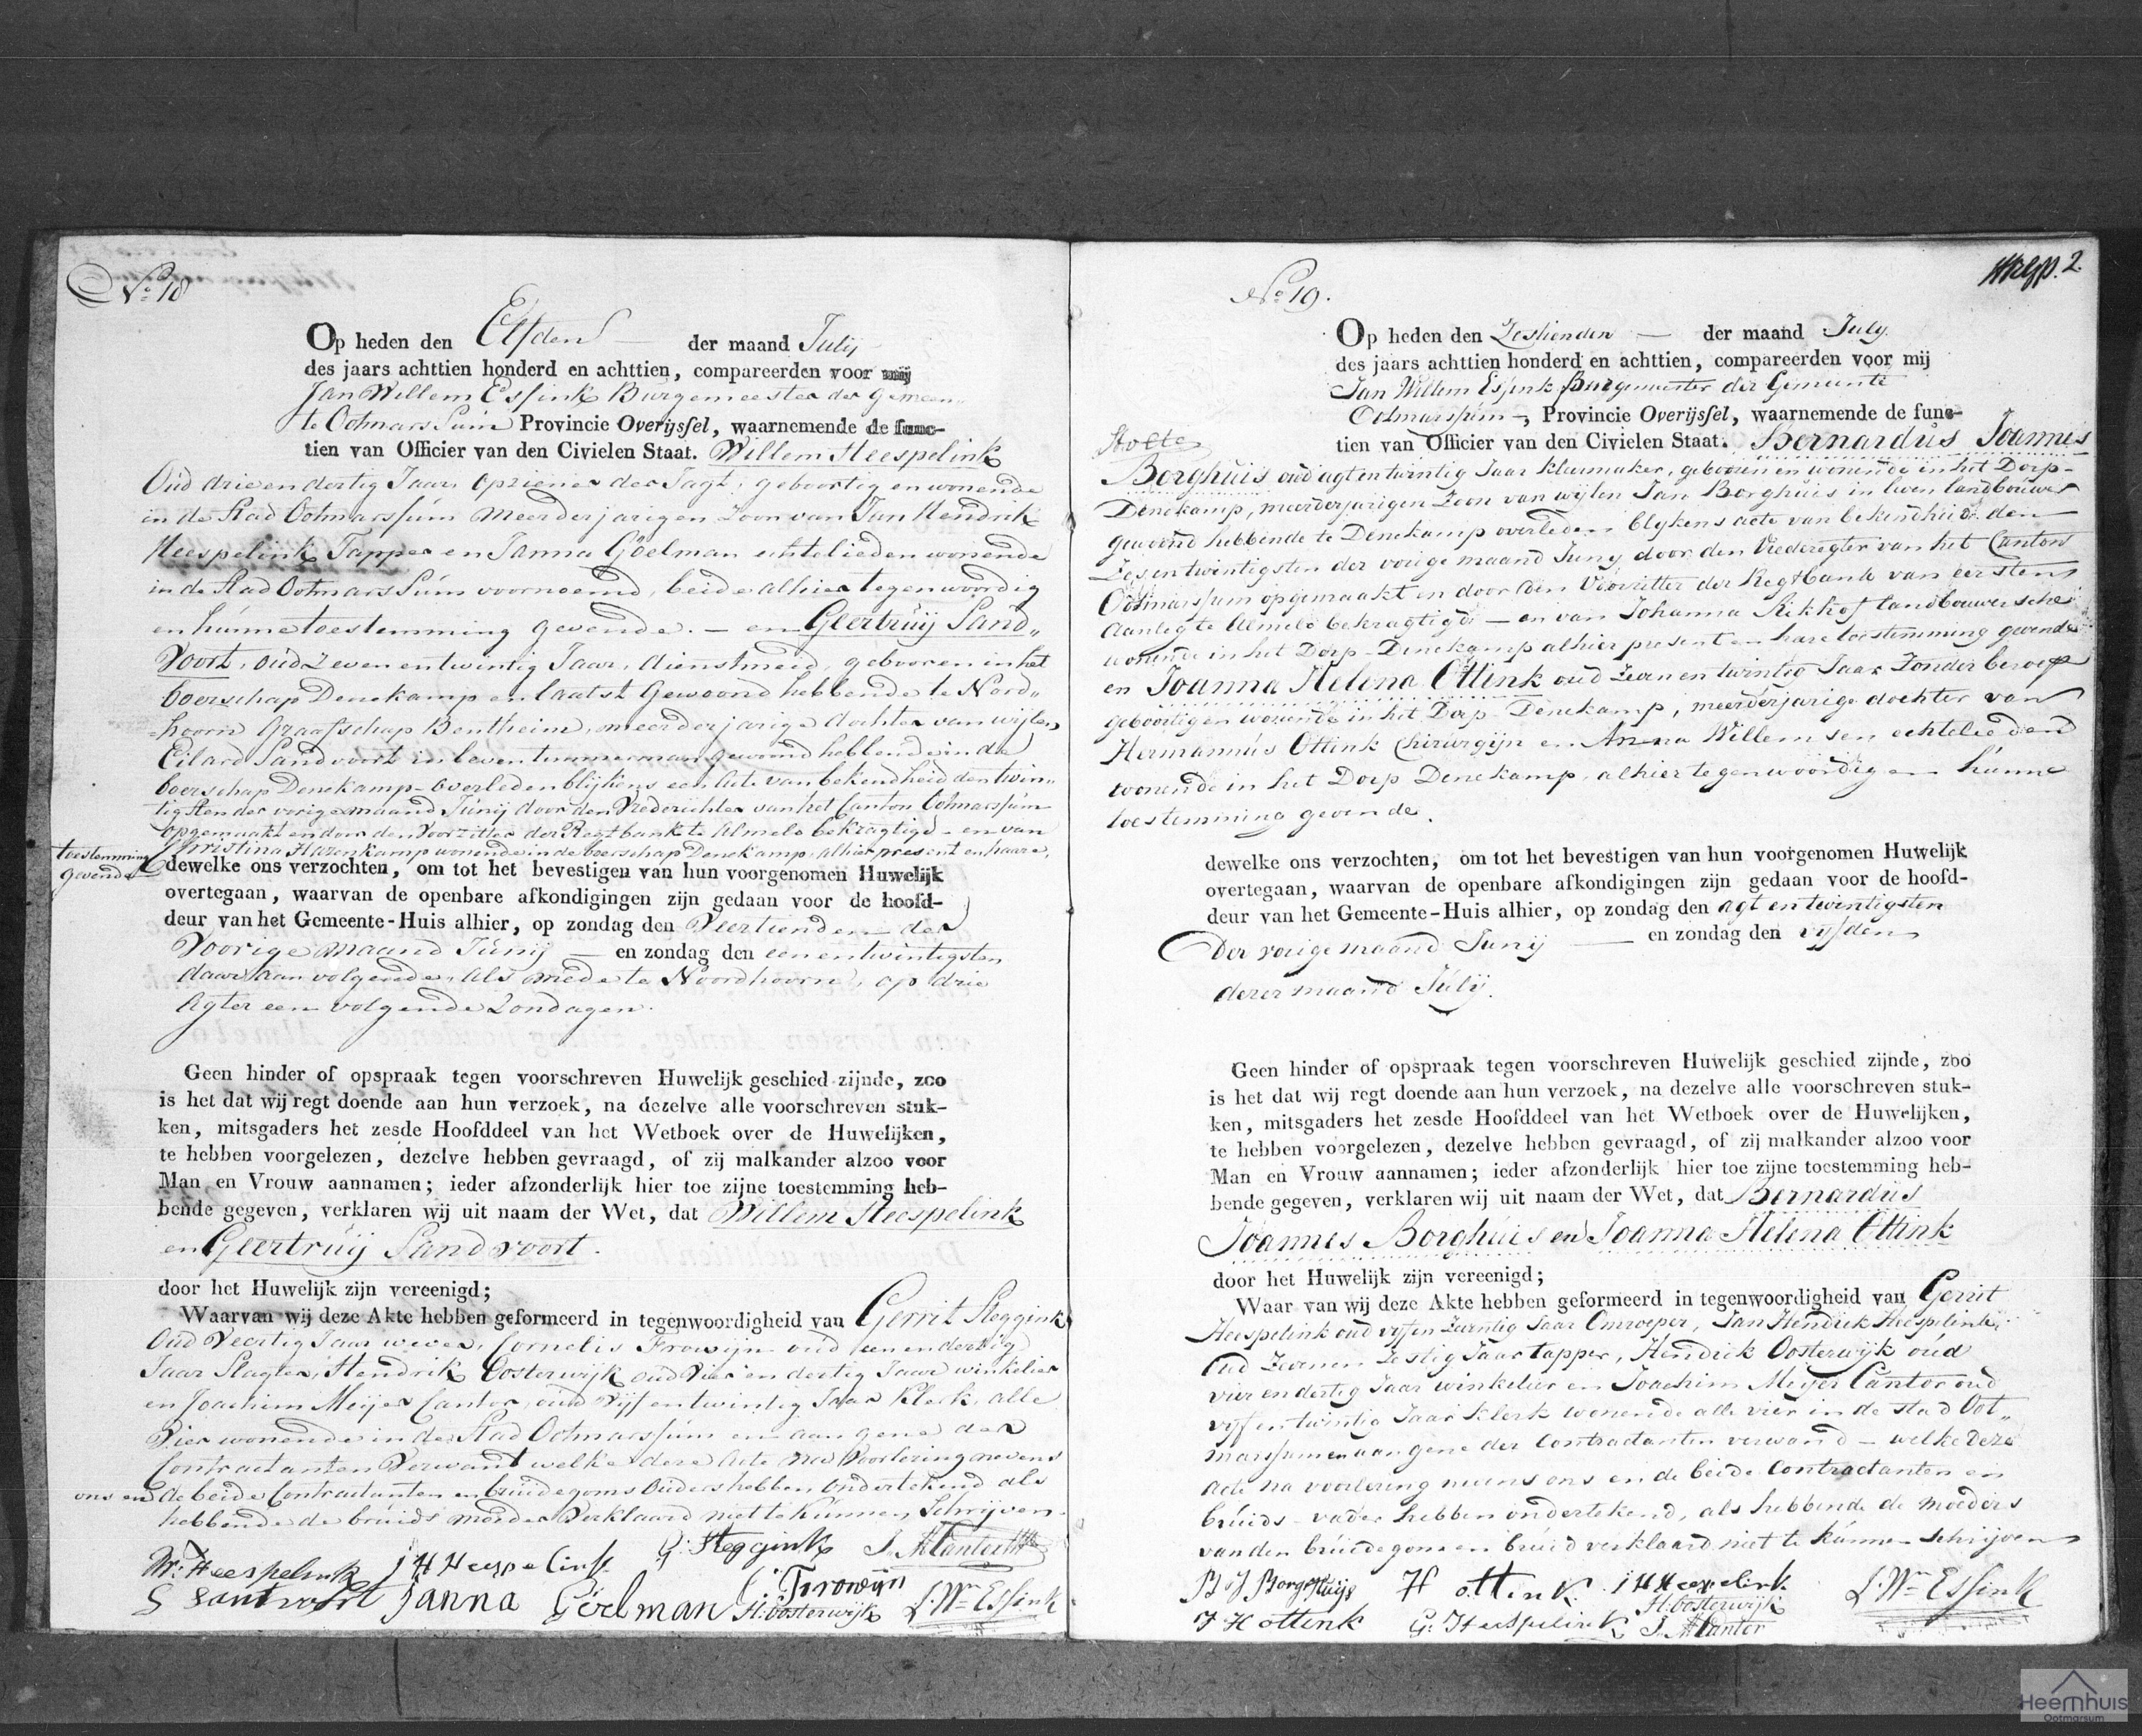 No. 18
Op heden den Elfden — der maand Julij
des jaars achttien honderd en achttien, compareerden voor mij
Jan Willem Essink Burgemeester der Gemeen„
te OotmarsSum Provincie Overijssel, waarnemende de func-
tien van Officier van den Civielen Staat. Willem Heespelink
Oud drie en dertig Jaar, Opziener der Jagt, geboortig en wonende
in de Stad Ootmarssum Meerderjarigen Zoon van Jan Hendrik
Heespelink Tapper en Janna Göelman echtelieden wonende
in de Stad OotmarsSum voornoemd, beide alhier tegenwoordig
en hunne toestemming gevende. — en Geertruij Sand„
Voort, Oud Zeven en twintig Jaar, dienstmeid, gebooren in het
boerschap Denekamp en laatst Gewoond hebbende te Nord„
hoorn Graafschap Bentheim, meerderjarige dochter van wijlen
Eilard Sandvoort in leven timmerman gewoond hebbende in de
boerschap Denekamp overleden blijkens een Acte van bekendheid den twin„
tigsten der vorige maand Junij door den Vrederichter van het Canton Ootmarssum
opgemaakt en door den Voorzitter der Regtbank te Almelo bekragtigd — en van
Christina Hazenkamp wonende in de boerschap Denekamp alhier present en haare
toestemming
gevende
dewelke ons verzochten, om tot het bevestigen van hun voorgenomen Huwelijk
overtegaan, waarvan de openbare afkondigingen zijn gedaan voor de hoofd-
deur van het Gemeente-Huis alhier, op zondag den Veertienden der
Voorige maand Junij — en zondag den een en twintigsten
daar aan volgende, als mede te Noordhoorn, op drie
Agter een volgende Zondagen.
Geen hinder of opspraak tegen voorschreven Huwelijk geschied zijnde, zoo
is het dat wij regt doende aan hun verzoek, na dezelve alle voorschreven stuk-
ken, mitsgaders het zesde Hoofddeel van het Wetboek over de Huwelijken,
te hebben voorgelezen, dezelve hebben gevraagd, of zij malkander alzoo voor
Man en Vrouw aannamen; ieder afzonderlijk hier toe zijne toestemming heb-
bende gegeven, verklaren wij uit naam der Wet, dat Willem Heespelink
en Geertruij Sandvoort.
door het Huwelijk zijn vereenigd;
Waarvan wij deze Akte hebben geformeerd in tegenwoordigheid van Gerrit Steggink
Oud Veertig Jaar wever, Cornelis Frowijn oud een en dertig
Jaar Slagter, Hendrik Oosterwijk oud Vier en dertig Jaar winkelier
en Joachim Meijer Cantor, oud Vijf en twintig Jaar Klerk, alle
Vier wonende in de Stad Ootmarssum en aan gene der
Contractanten Verwant welke deze Acte na Voorlezing nevens
ons en de beide Contractanten en bruidegoms Ouders hebben ondertekend als
hebbende de bruids moeder Verklaard niet te kunnen Schrijven.
W: Heespelink J H Heespelink G: Steggink J. M Cantor
G Santvoort Janna Göelman C: Frowijn H: Oosterwijk J. Wm Essink
2.
No. 19.
Op heden den Zestienden — der maand July.
des jaars achttien honderd en achttien, compareerden voor mij
Jan Willem Essink Burgemeester der Gemeente
Ootmarssum —, Provincie Overijssel, waarnemende de func-
tien van Officier van den Civielen Staat. Bernardus Joannes
Borghuis oud agt en twintig Jaar kleermaker, gebooren en wonende in het Dorp
Denekamp, meerderjarigen Zoon van wijlen Jan Borghuis in leven landbouwer
gewoond hebbende te Denekamp overleden blykens acte van bekendheid den
Zes en twintigsten der vorige maand Juny door den Vrederegter van het Canton
Ootmarssum opgemaakt en door den Voorzitter der Regtbank van eersten
Aanleg te Almelo bekragtigd — en van Johanna Kikkhof landbouwersche
wonende in het Dorp Denekamp alhier present en hare toestemming gevende
en Joanna Helena Ottink oud Zeven en twintig Jaar Zonder beroep
geboortig en wonende in het Dorp Denekamp, meerderjarige dochter van
Hermannus Ottink Chirurgijn en Anna Willemsen echtelieden
wonende in het Dorp Denekamp, alhier tegenwoordig en hunne
toestemming gevende.
dewelke ons verzochten, om tot het bevestigen van hun voorgenomen Huwelijk
overtegaan, waarvan de openbare afkondigingen zijn gedaan voor de hoofd-
deur van het Gemeente-Huis alhier, op zondag den agt en twintigsten
Der vorige maand Junij — en zondag den vijfden
dezer maand Julij.
Geen hinder of opspraak tegen voorschreven Huwelijk geschied zijnde, zoo
is het dat wij regt doende aan hun verzoek, na dezelve alle voorschreven stuk-
ken, mitsgaders het zesde Hoofddeel van het Wetboek over de Huwelijken,
te hebben voorgelezen, dezelve hebben gevraagd, of zij malkander alzoo voor
Man en Vrouw aannamen; ieder afzonderlijk hier toe zijne toestemming heb-
bende gegeven, verklaren wij uit naam der Wet, dat Bernardus
Joannes Borghuis en Joanna Helena Ottink
door het Huwelijk zijn vereenigd;
Waar van wij deze Akte hebben geformeerd in tegenwoordigheid van Gerrit
Heespelink oud vyf en Zeventig Jaar Omroeper, Jan Hendrik Heespelink
Oud Zeven en Zestig Jaar tapper, Hendrik Oosterwijk oud
vier en dertig Jaar winkelier en Joachim Meijer Cantor oud
vijf en twintig Jaar Klerk wonende alle vier in de Stad Oot„
marssum en aan gene der Contractanten verwand — welke deze
acte na voorlezing nevens ons en de beide Contractanten en
bruids vader hebben ondertekend, als hebbende de moeders
van den bruidegom en bruid verklaard niet te kunnen schrijven
B J Borghuijs H ottink J H Heespelink J. Wm Essink
J H ottink G: Heespelink H: Oosterwijk J. M Cantor
Heemhuis
Ootmarsum